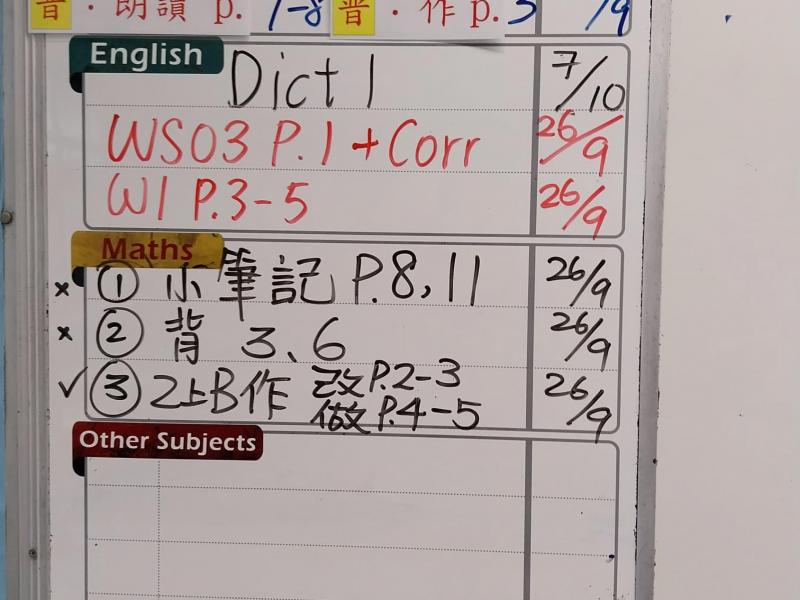 普・朗讀 p. 1-8 普・作 p.5 /9
English
Dict 1 7/10
WS03 P.1 + Corr 26/9
W1 P.3-5 26/9
Maths
× ① 小筆記 P.8, 11 26/9
× ② 背 3、6 26/9
✓ ③ 2上B作 改P.2-3 26/9
做P.4-5
Other Subjects